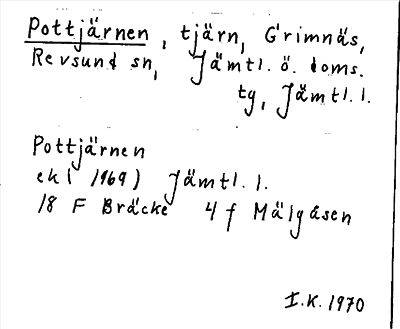 Pottjärnen, tjärn, Grimnäs,
Revsund sn, Jämtl. ö. doms.
tg, Jämtl. l.
Pottjärnen
ek( 1969) Jämtl. l.
18 F Bräcke 4 f Mälgåsen
I.K. 1970